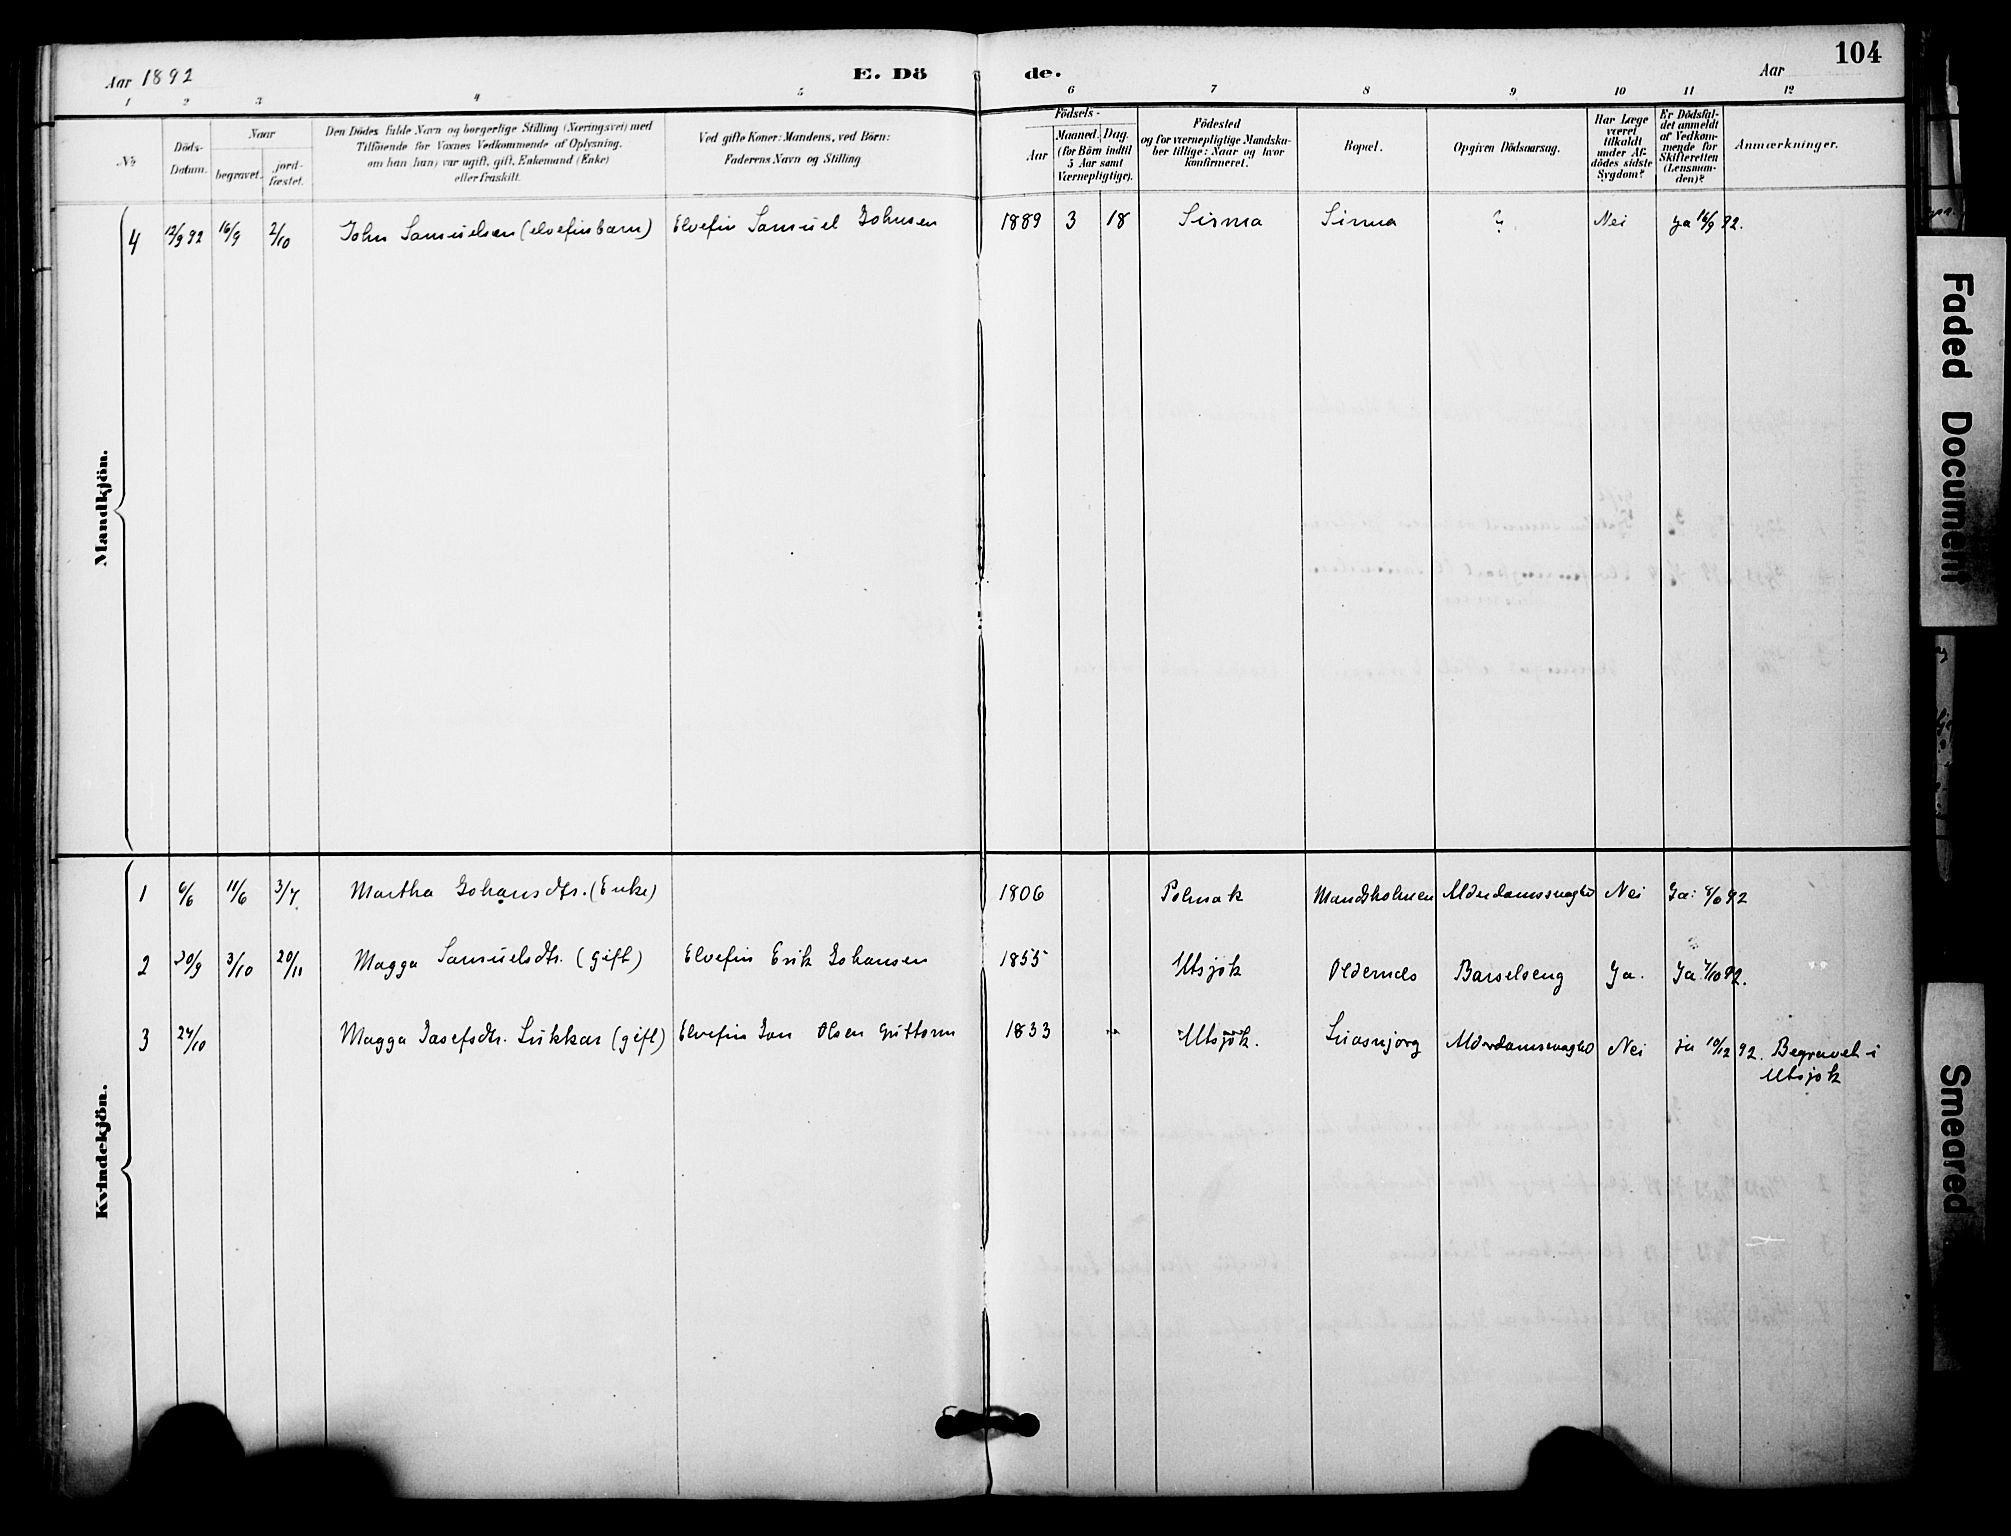 104
Aar 1892
E. Dö de.
Aar
1 2 3 4 5 6 7 8 9 10 11 12
No.
Döds-
Datum.
Naar
begravet.
jord-
fæstet.
Den Dödes fulde Navn og borgerlige Stilling (Næringsvei) med
Tilföiende for Voxnes Vedkommende af Oplysning,
om han (hun) var ugift, gift, Enkemand (Enke)
eller fraskilt.
Ved gifte Koner: Mandens, ved Börn:
Faderens Navn og Stilling.
Födsels-
Aar
Maaned. Dag.
(for Börn indtil
5 Aar samt
Værnepligtige).
Födested
og for værnepligtige Mandska-
ber tillige: Naar og hvor
konfirmeret.
Bopæl.
Opgiven Dödsaarsag.
Har Læge
været
tilkaldt
under Af-
dödes sidste
Sygdom?
Er Dödsfal-
det anmeldt
af Vedkom-
mende for
Skifteretten
(Lensman-
den)?
Anmærkninger.
Mandkjön.
4 12/9 92 16/9 2/10 John Samuelsen (elvefinbarn) Elvefin Samuel Johnsen 1889 3 18 Sirma Sirma ? Nei Ja 16/9 92.
Kvindekjön.
1 6/6 11/6 3/7 Martha Johansdtr. (Enke) 1806 Polmak Mandsholmen Alderdomssvaghd Nei Ja: 8/6 92
2 30/9 3/10 20/11 Magga Samuelsdtr. (gift) Elvefin Erik Johansen 1855 Utsjok Oldernæs Barselseng Ja. Ja 7/10 92.
3 24/10 Magga Josefsdtr. Lukkar (gift) Elvefin Jon Olsen Guttorm 1833 Utsjok. Alderdomssvaghd Nei ja 10/12 92. Begravet i
Utsjok
Faded Document
Smeared